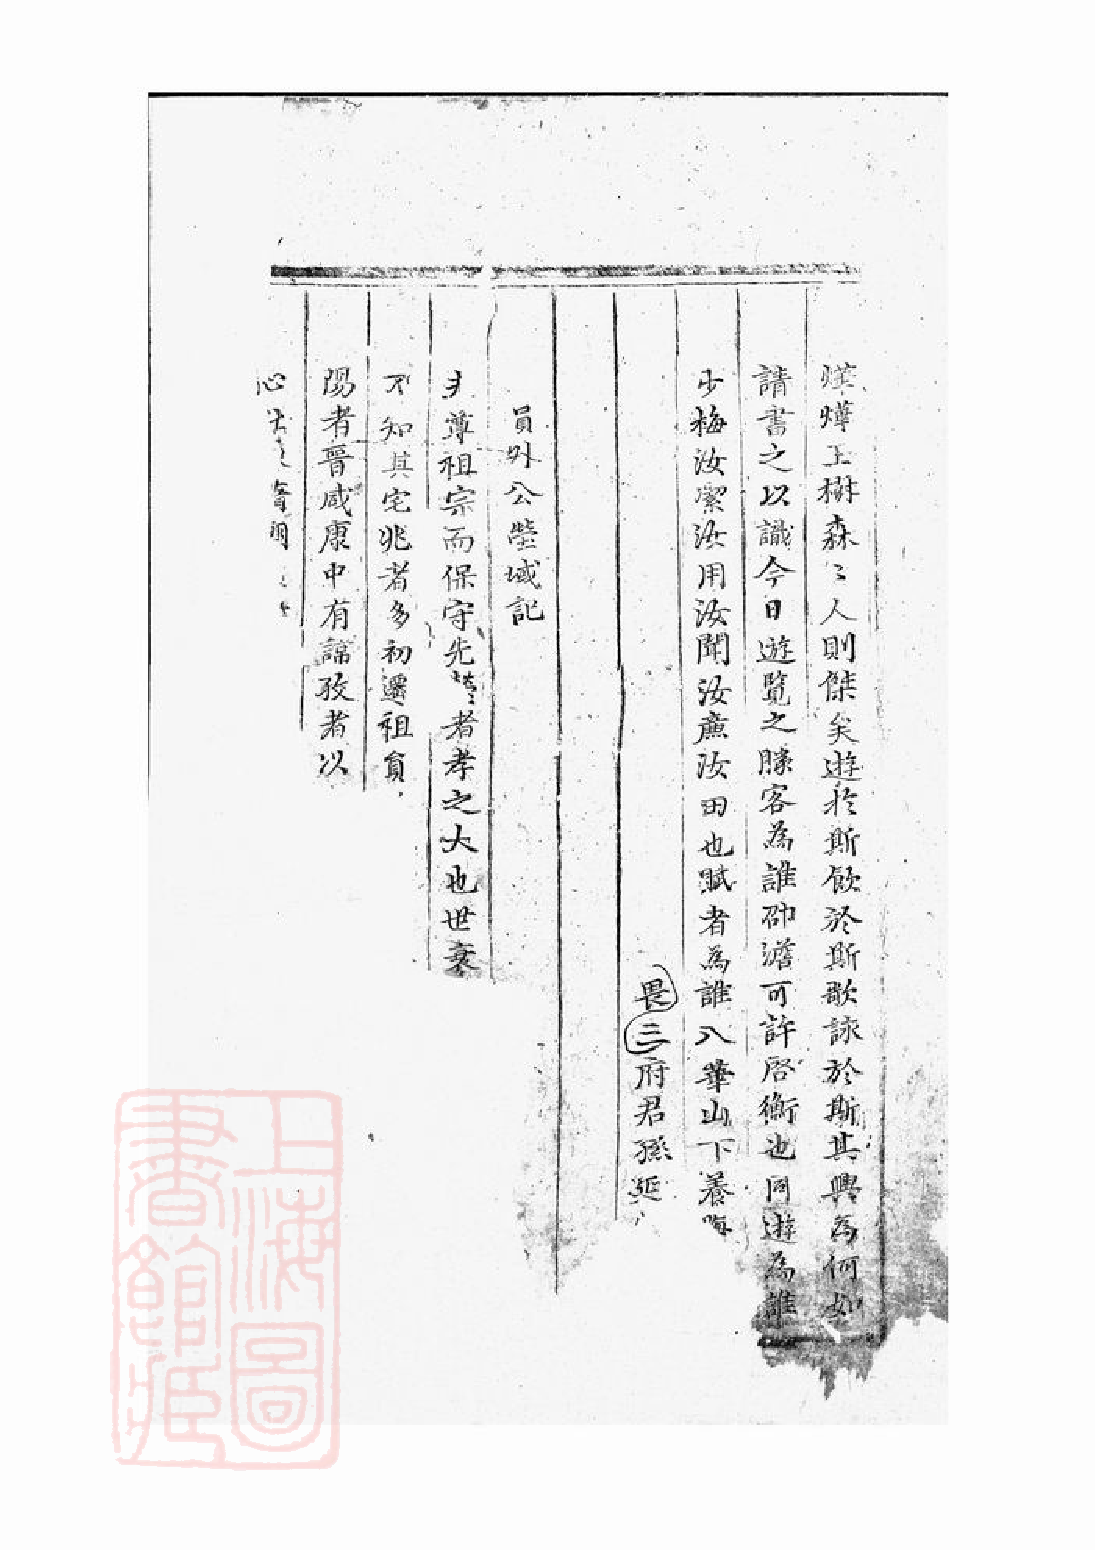 燁玉樹森〻人則傑矣遊於斯飲於斯歌詠於斯其興為何如
請書之以識今日遊覽之勝客為誰邵澹可許啓衡也同遊為誰
少梅汝潔汝用汝聞汝廉汝田也賦者為誰八華山下養晦
畏三府君孫延
員外公塋域記
尊祖宗而保守先者孝之大也世衰
不知其宅兆者多初遷祖
陽者晉咸康中有諱孜者以
心
上海圖書館藏